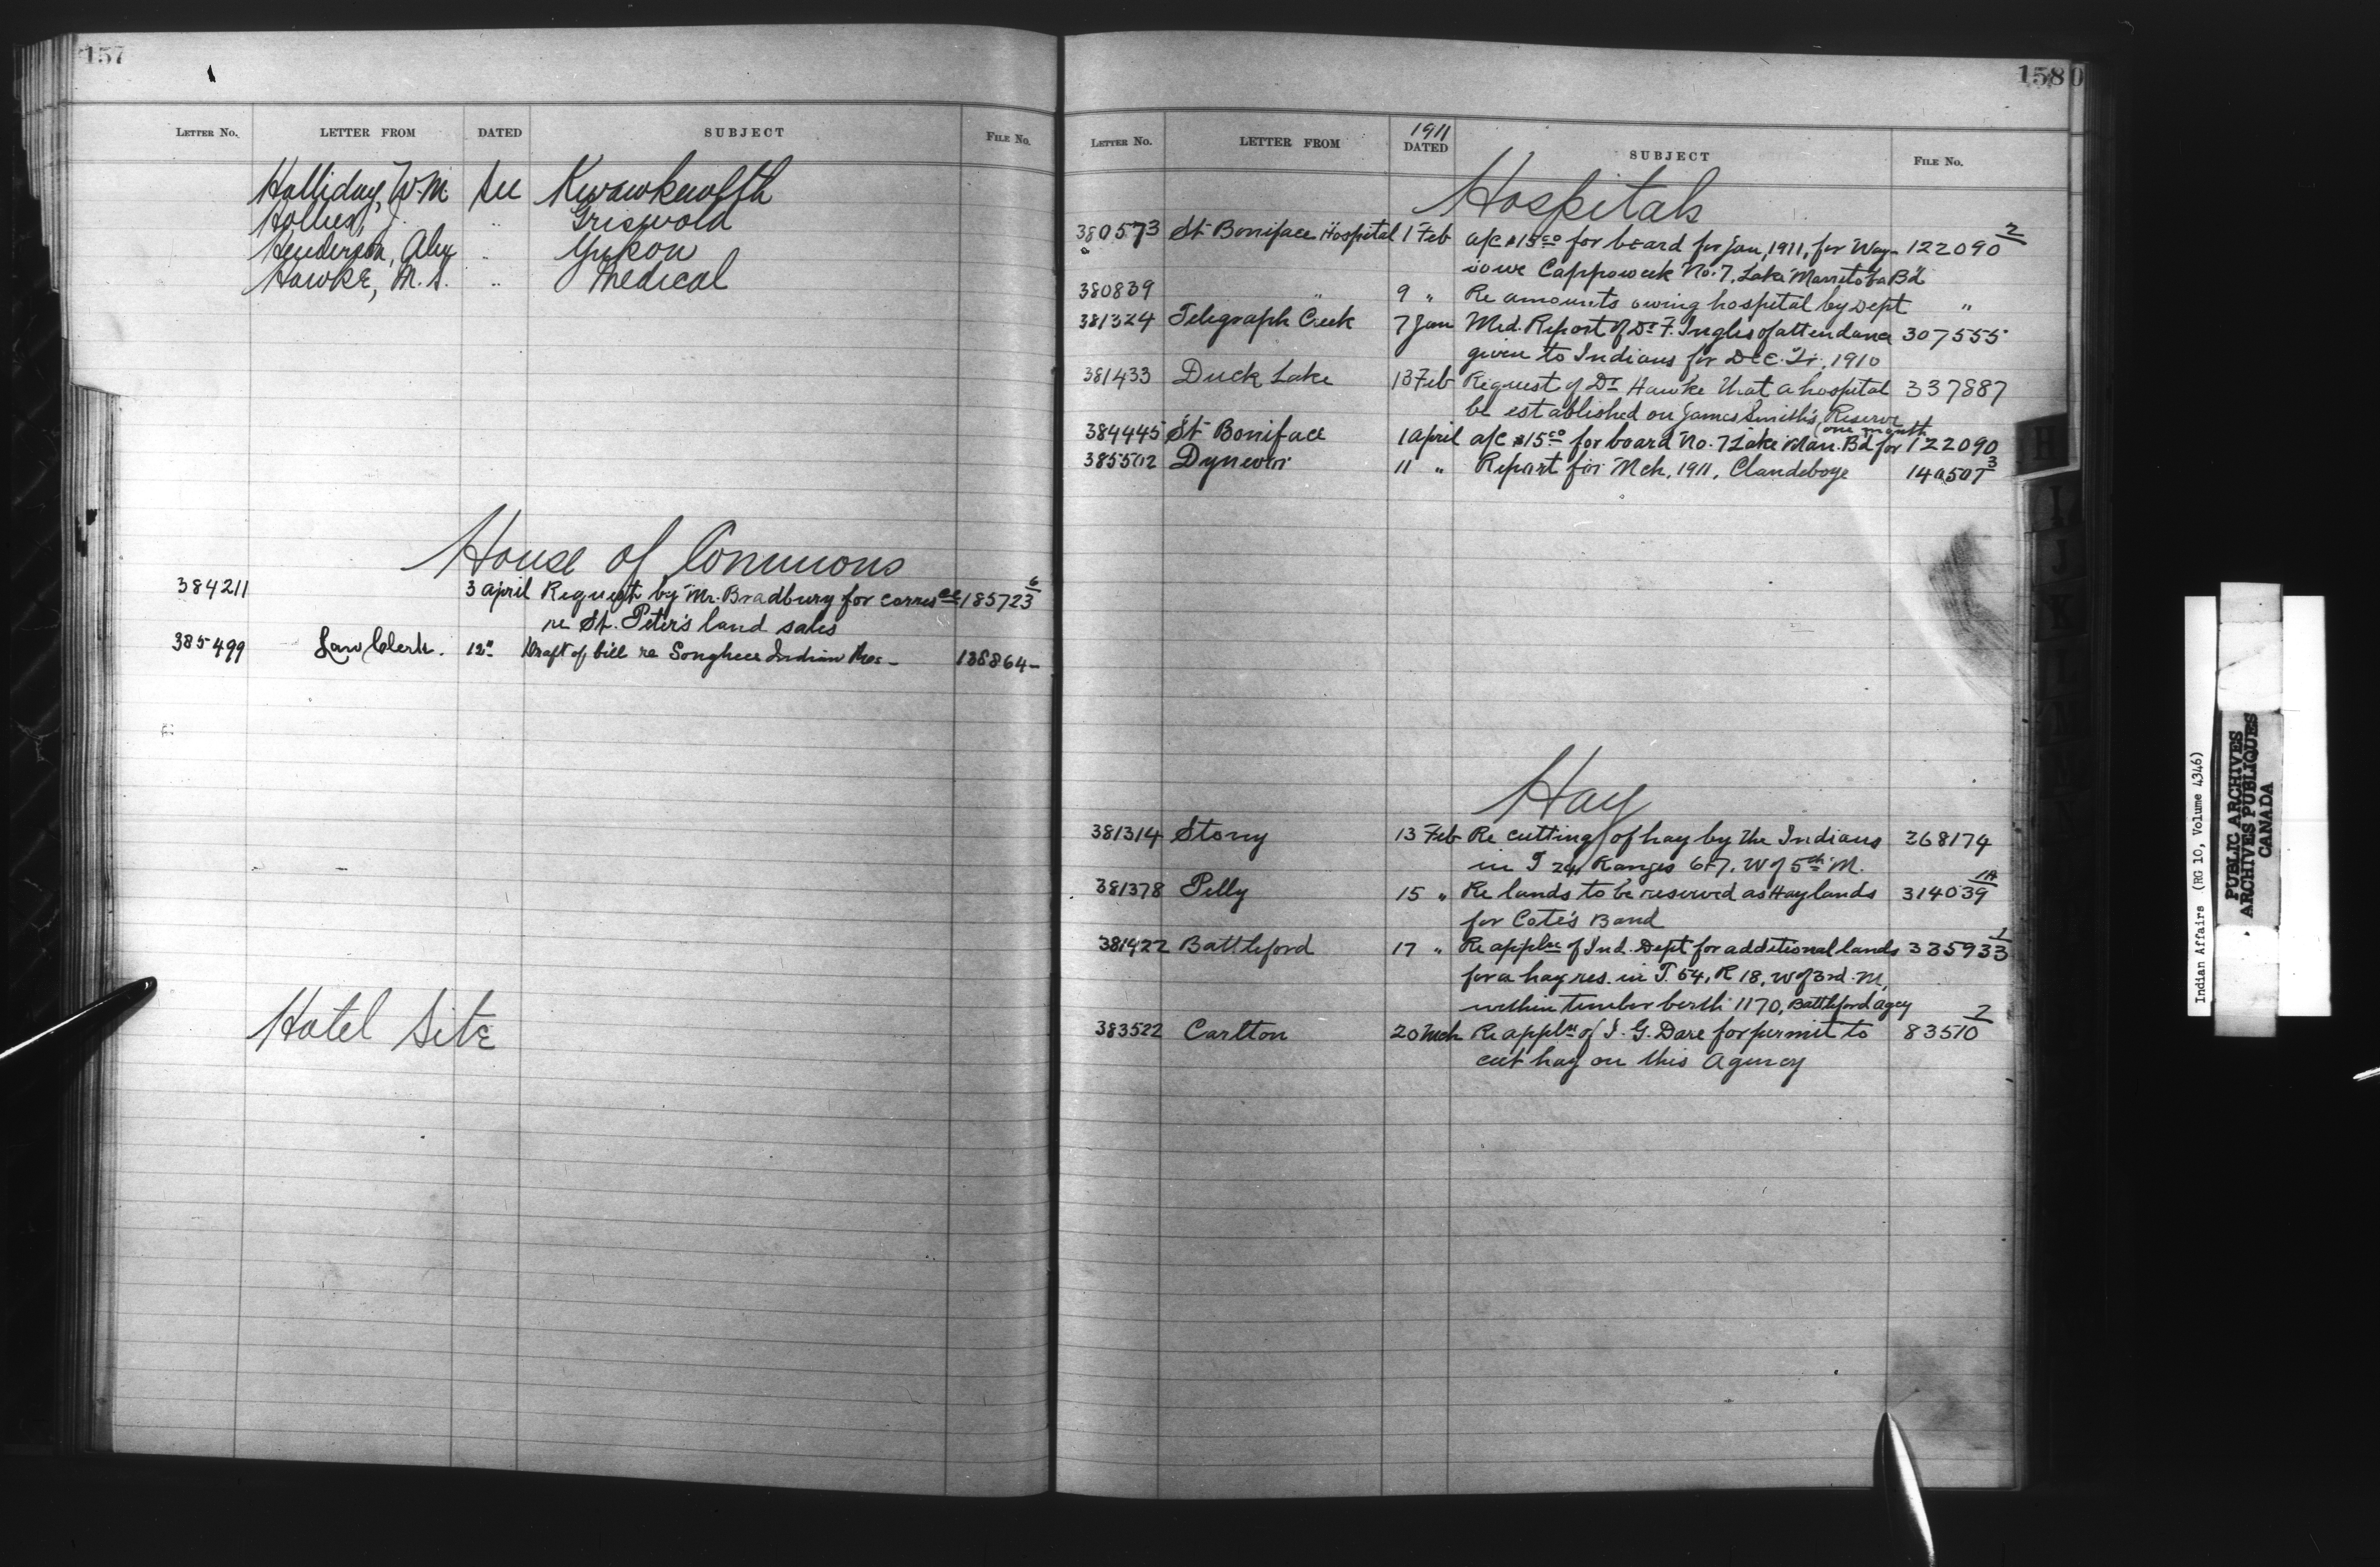 157
LETTER No. LETTER FROM DATED SUBJECT FILE No.
Halliday, W. M. See Kwawkewlth
Hollies, J. " Griswold
Henderson, Alex " Yukon
Hawke, M. S. " Medical
House of Commons
384211 3 April Request by Mr. Bradbury for corresce 185723 6
re St. Peter's land sales
385499 Law Clerk. 12" Draft of bill re Songhees Indian Res- 138864-
Hotel Site
158
LETTER No. LETTER FROM 1911 DATED SUBJECT FILE No.
Hospitals
380573 St Boniface Hospital 1 Feb a/c $15.00 for board for Jan, 1911, for Way- 122090 2
No. 7, Lake Manitoba Bd
380839 " 9 " Re amounts owing hospital by Dept "
381324 Telegraph Creek 7 Jan Med. Report of Dr F. Inglis of attendance 307555
given to Indians for Dec. Qr. 1910
381433 Duck Lake 13 Feb Request of Dr Hawke that a hospital 337887
be established on James Smith's Reserve
one month
384445 St Boniface 1 April a/c $15.00 for board No. 7 Lake Man. Bd for 122090
385502 Dynevor 11 " Report for Mch, 1911, Clandeboye 140507 3
Hay
381314 Stony 13 Feb Re cutting of hay by the Indians 368174
in T 24, Ranges 6+7, W of 5th M.
381378 Pelly 15 " Re lands to be reserved as Hay lands 314039 1A
for Cote's Band
381422 Battleford 17 " Re applne of Ind. Dept for additional lands 335933 1
for a hay res. in T. 54, R 18, W of 3rd M,
within timber berth 1170, Battleford Agcy
383522 Carlton 20 Mch Re applne of J. G. Dare for permit to 83510 2
cut hay on this Agency
H
I
J
K
L
M
Indian Affairs (RG 10, Volume 4346)
PUBLIC ARCHIVES
ARCHIVES PUBLIQUES
CANADA